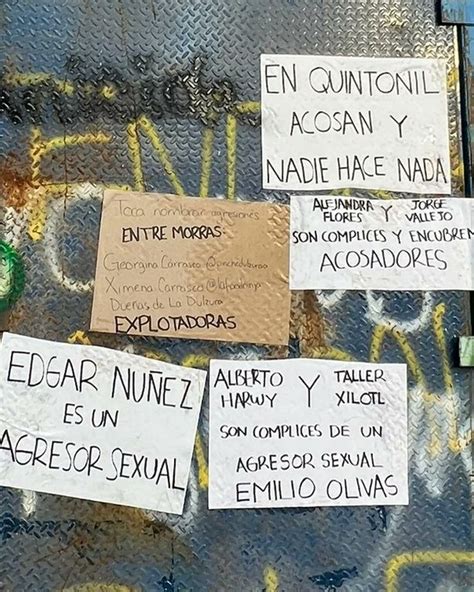 EN QUINTONIL
ACOSAN Y
NADIE HACE NADA
ALEJANDRA Y JORGE
FLORES VALLEJO
SON COMPLICES Y ENCUBREN
ACOSADORES
Toca nombrar agresiones
ENTRE MORRAS:
Georgina Carrasco
Ximena Carrasco
Dueñas de La Dulzura
EXPLOTADORAS
EDGAR NUÑEZ
ES UN
AGRESOR SEXUAL
ALBERTO Y TALLER
HARWY XILOTL
SON COMPLICES DE UN
AGRESOR SEXUAL
EMILIO OLIVAS